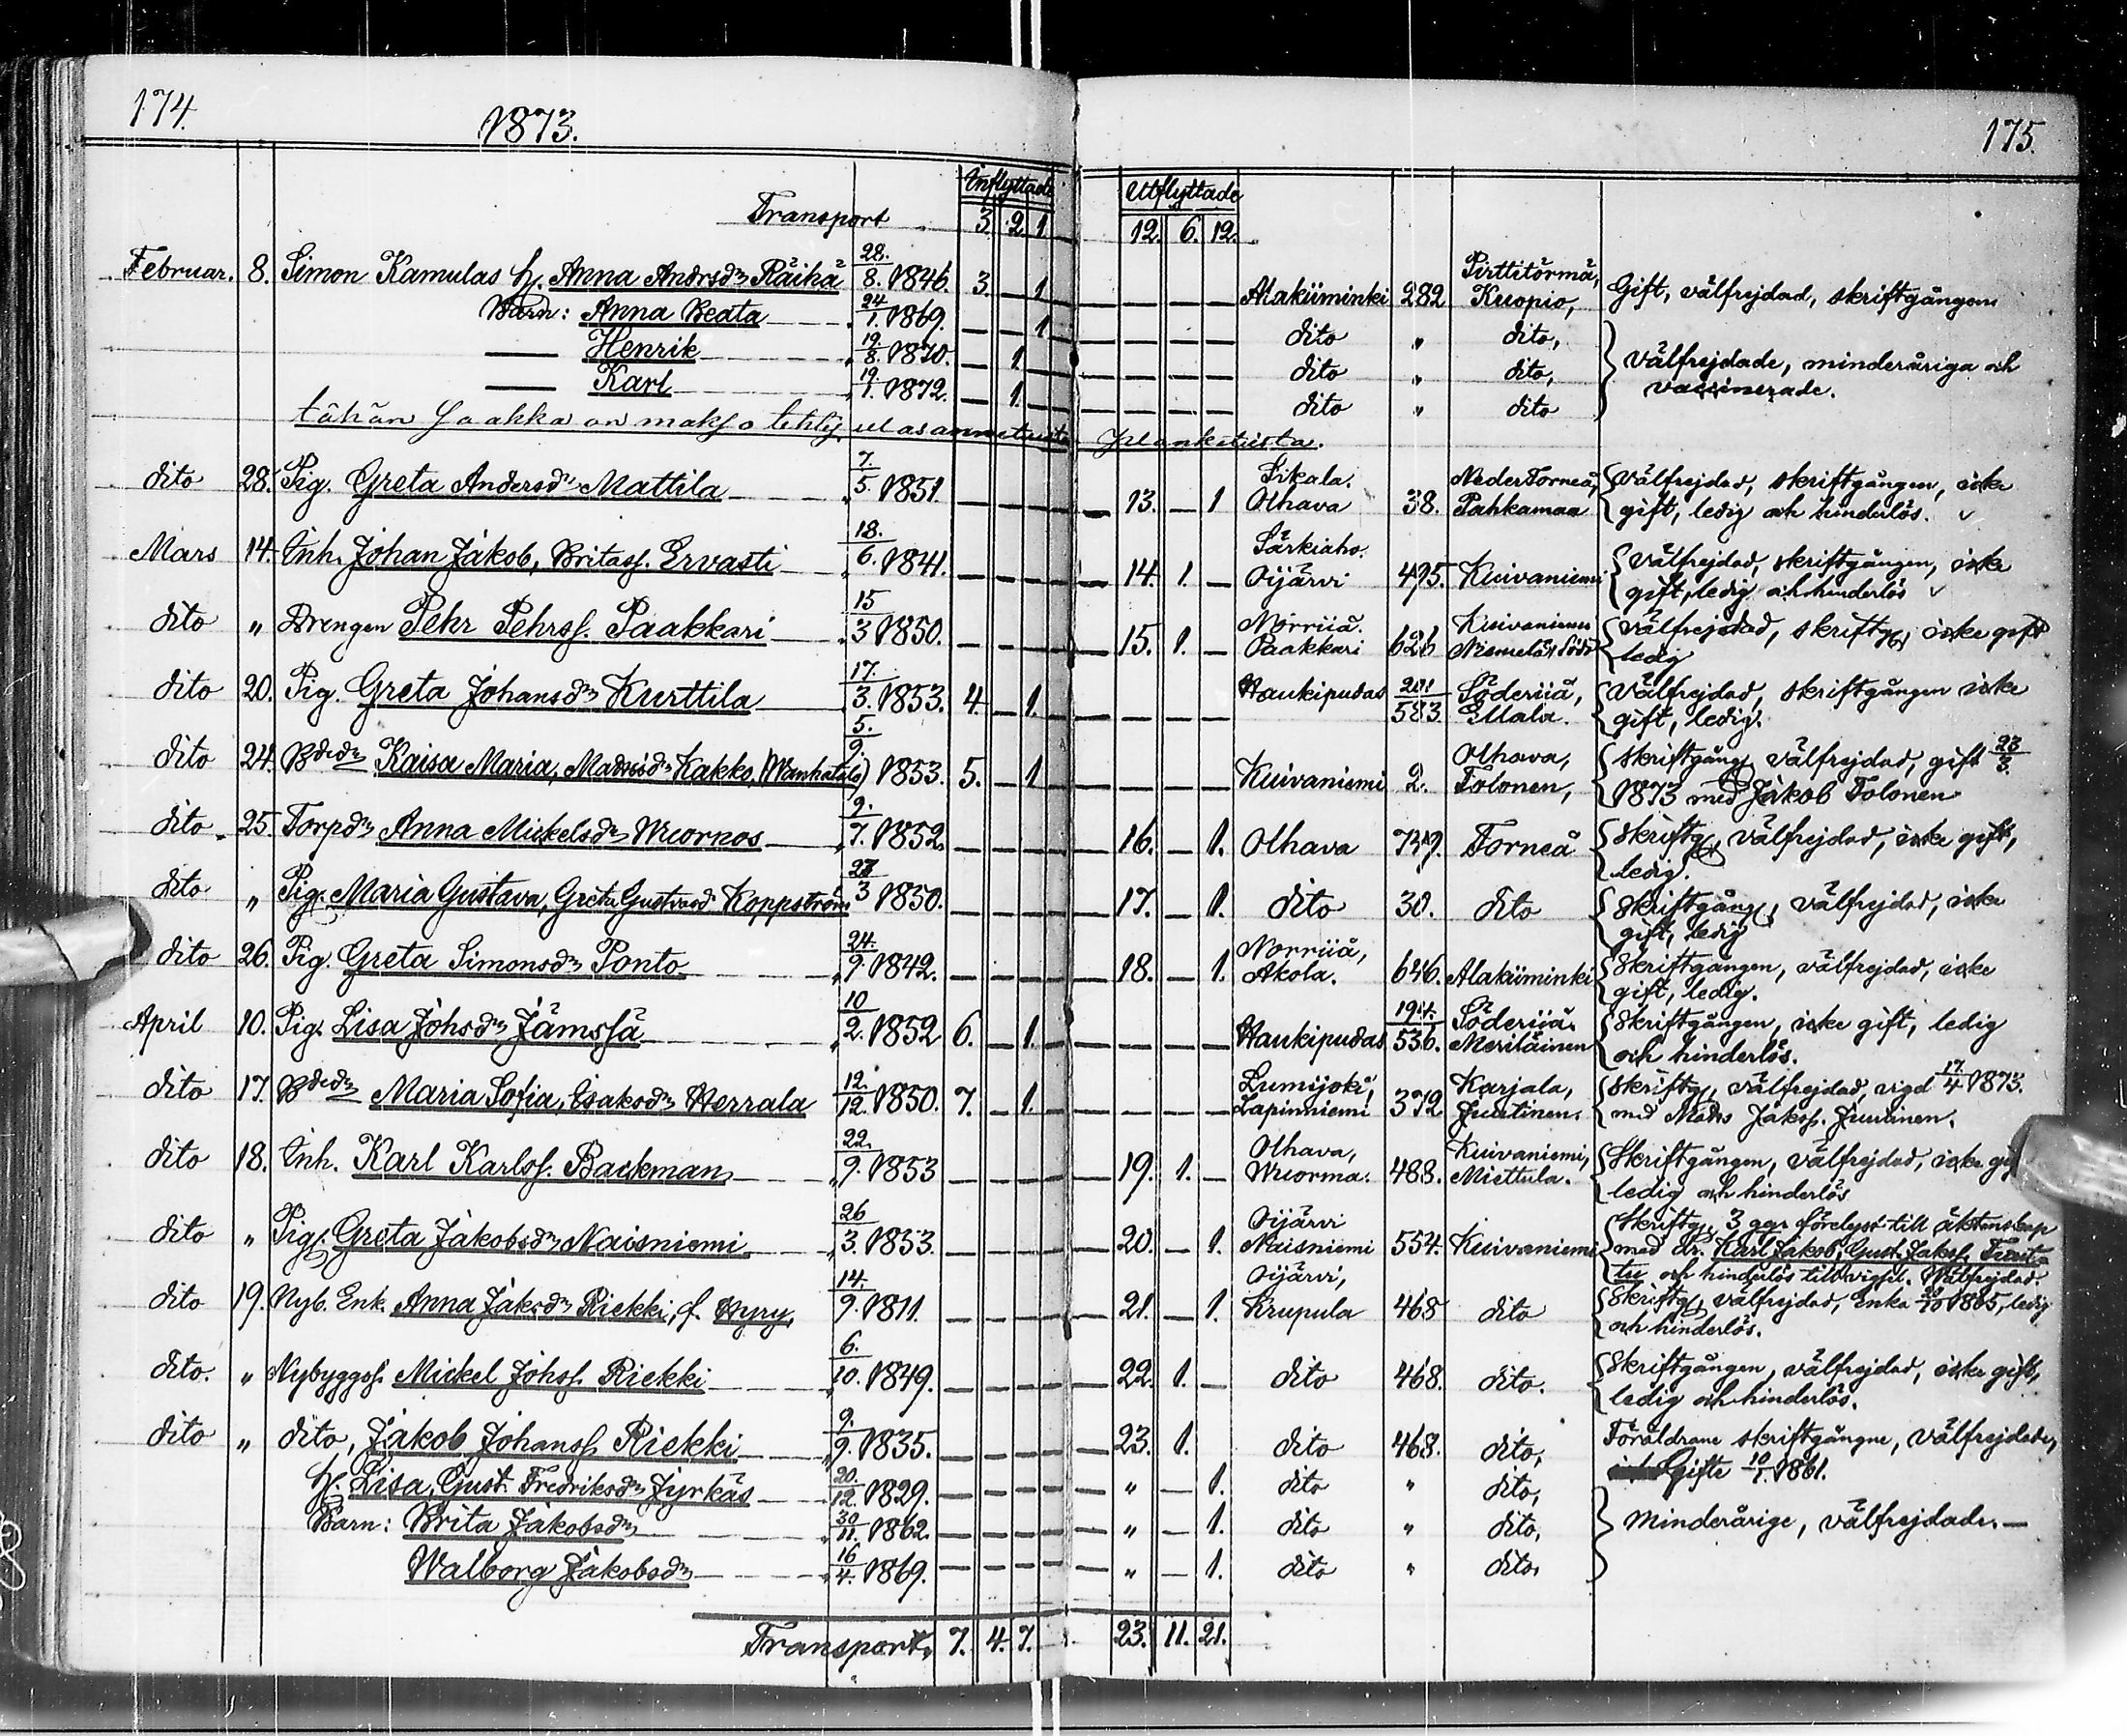 174. 1873. 175.
Inflyttade Utflyttade
Transport 3. 2. 1. 12. 6. 12.
Februar. 8. Simon Kamulas h. Anna Andrsdr Räihä 28./8. 1846. 3. — 1 — — — — Alakiiminki 282 Pirttitörmä, Kuopio, Gift, välfrejdad, skriftgången
Barn: Anna Beata 24/1. 1869. — — 1 — — — — dito " dito,
— Henrik 19/8. 1870. — 1. — — — — — dito " dito, välfrejdade, minderåriga och
— Karl 19/1. 1872. — 1. — — — — — dito " dito vaccinerade.
tähän saakka on makso tehty ulosannetuista planketuista.
dito 28. Pig. Greta Andersdr Mattila 7./5. 1851. — — — — 13. — 1 Sikala. Olhava 38. NederTorneå, Pahkamaa välfrejdad, skriftgången, icke
gift, ledig och hinderlös.
Mars 14. Inh. Johan Jakob, Britass. Ervasti 18./6. 1841. — — — — 14. 1. — Särkiaho. Oijärvi 495. Kuivaniemi välfrejdad, skriftgången, icke
gift, ledig och hinderlös
dito " Drengen Pehr Pehrss. Paakkari 15/3 1850. — — — — 15. 1. — Norriiå. Paakkari 626 Kuivaniemi välfrejdad, skriftg. icke gift
ledig
dito 20. Pig. Greta Johansdr Kurttila 17./3. 1853. 4. — 1. — — — — Haukipudas 201/583. Söderiiå, Ellala. välfrejdad, skriftgången icke
gift, ledig.
dito 24. Bdedr Kaisa Maria, Madsdr Kakko, (Wanhatalo) 5./9. 1853. 5. — 1 — — — — Kuivaniemi 2. Olhava, Tolonen, skriftgång. välfrejdad, gift 23/3.
1873 med Jakob Tolonen
dito 25. Torpdr Anna Mickelsdr Wuornos 9./7. 1852. — — — — 16. — 1. Olhava 739. Torneå skriftg. välfrejdad, icke gift,
ledig.
dito " Pig. Maria Gustava, Greta Gustavsd. Koppström 27/3 1850. — — — — 17. — 1. dito 30. dito skriftgång. välfrejdad, icke
gift, ledig
dito 26. Pig. Greta Simonsdr Ponto 24./9. 1842. — — — — 18. — 1. Norriiå, Akola. 646. Alakiiminki skriftgången, välfrejdad, icke
gift, ledig.
April 10. Pig. Lisa Johsdr Jämssä 10/2. 1852 6. — 1. — — — — Haukipudas 194./536. Söderiiå. Meriläinen skriftgången, icke gift, ledig
och hinderlös.
dito 17. Bdedr Maria Sofia, Isaksdr Herrala 12./12. 1850. 7. — 1. — — — — Lumijoki, Lapinniemi 372 Karjala, Juutinen. skriftg. välfrejdad, vigd 17/4 1873.
med Mats Jakoss. Juutinen.
dito 18. Inh. Karl Karlss. Backman 22./9. 1853 — — — — 19. 1. — Olhava, Wuorma. 488. Kuivaniemi, Miettula. Skriftgången, välfrejdad, icke
ledig och hinderlös
dito " Pig. Greta Jakobsdr Naisniemi 26/3. 1853. — — — — 20. — 1. Oijärvi Naisniemi 554. Kuivaniemi skriftg. 3 ggr förelyst till äktenskap
med dr. Karl Jakob, Gust. Jakoss.
och hinderlös till vigsel. Wälfrejdad.
dito 19. Nyb. Enk. Anna Jaksdr Riekki, f. Hyry, 14./9. 1811. — — — — 21. — 1. Oijärvi, Krupula 468 dito skriftg. välfrejdad, Enka 1865, ledig
och hinderlös.
dito. " Nybyggss. Mickel Johss. Riekki 6./10. 1849. — — — — 22. 1. — dito 468. dito. skriftgången, välfrejdad, icke gift,
ledig och hinderlös.
dito " dito, Jakob Johanss. Riekki 9./9. 1835. — — — — 23. 1. dito 468. dito, Föräldrane skriftgångne, välfrejdade,
h. Lisa, Gust. Fredriksdr Jyrkäs 20./12. 1829. — — — — " — 1. dito " dito, Gifte 10/7. 1861.
Barn: Brita Jakobsdr 30/11. 1862. — — — — " — 1. dito " dito, Minderårige, välfrejdade. —
Walborg Jakobsdr 16/4. 1869. — — — — " — 1. dito " dito.
Transport. 7. 4. 7. 23. 11. 21.